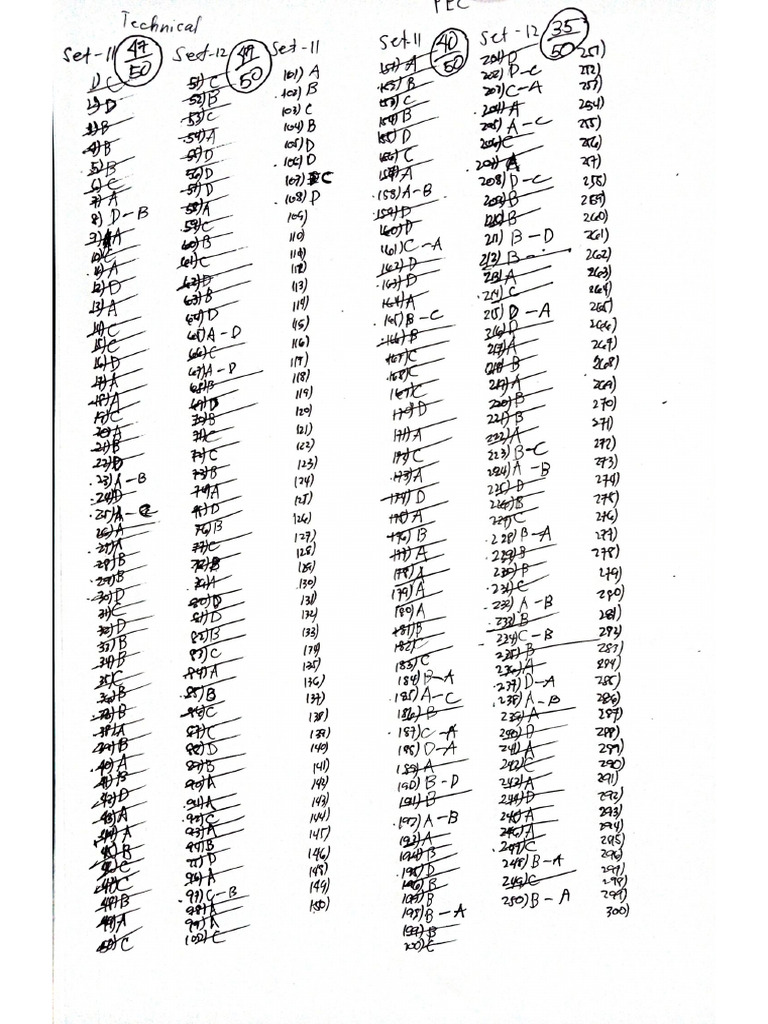 Technical
Set-11 47/50
1) C
2) D
3) B
4) B
5) B
6) C
7) A
8) D-B
9) A
10) C
11) A
12) D
13) A
14) C
15) C
16) D
17) A
18) A
19) C
20) A
21) B
22) D
23) A-B
24) D
25) A-C
26) A
27) A
28) B
29) B
30) D
31) C
32) D
33) B
34) B
35) C
36) B
B
38) A
39) B
40) A
41) B
42) D
43) A
44) A
B
C
C
B
49) A
50) C
Set-12 49/50
51) C
52) B
53) C
54) A
55) D
56) D
57) D
58) A
59) C
60) B
61) C
62) D
63) B
64) D
65) A-D
66) C
67) A-D
68) B
69) D
70) B
71) C
72) C
73) B
74) A
75) D
76) B
77) C
78) B
79) A
80) D
81) D
82) B
83) C
84) A
85) B
86) C
87) C
88) D
89) B
90) A
91) A
92) C
93) A
94) B
95) D
96) A
97) C-B
98) A
99) A
100) C
Set-11
101) A
102) B
103) C
104) B
105) D
106) D
107) C
108) D
109)
110)
111)
112)
113)
114)
115)
116)
117)
118)
119)
120)
121)
122)
123)
124)
125)
126)
127)
128)
129)
130)
131)
132)
133)
134)
135)
136)
137)
138)
139)
140)
141)
142)
143)
144)
145)
146)
148)
149)
150)
PEC
Set-11 40/50
A
B
C
B
D
C
A
158) A-B
159) D
160) D
161) C-A
162) D
163) D
164) A
165) B-C
166) B
167) C
168) C
169) C
170) D
171) A
172) C
173) A
174) D
175) A
176) B
177) A
178) A
179) A
180) A
181) B
182) C
183) C
184) B-A
185) A-C
186) B
187) C-A
188) D-A
189) A
190) B-D
191) B
192) A-B
193) A
194) B
195) D
196) B
197) B
198) B-A
199) B
200) C
Set-12 35/50
201) D
202) D-C
203) C-A
204) A
205) A-C
206) C
207) A
208) D-C
209) B
210) B
211) B-D
212) B
213) A
214) C
215) D-A
216) D
217) A
218) B
219) A
220) B
221) B
222) A
223) B-C
224) A-B
225) D
226) B
227) C
228) B-A
229) B
230) B
231) C
232) A-B
233) B
234) C-B
235) B
236) A
237) D-A
238) A-B
239) A
240) D
241) A
242) C
243) A
244) D
245) A
246) A
247) C
248) B-A
249) C
250) B-A
251)
252)
253)
254)
255)
256)
257)
258)
259)
260)
261)
262)
263)
264)
265)
266)
267)
268)
269)
270)
271)
272)
273)
274)
275)
276)
277)
278)
279)
280)
281)
282)
283)
284)
285)
286)
287)
288)
289)
290)
291)
292)
293)
294)
295)
296)
297)
298)
299)
300)